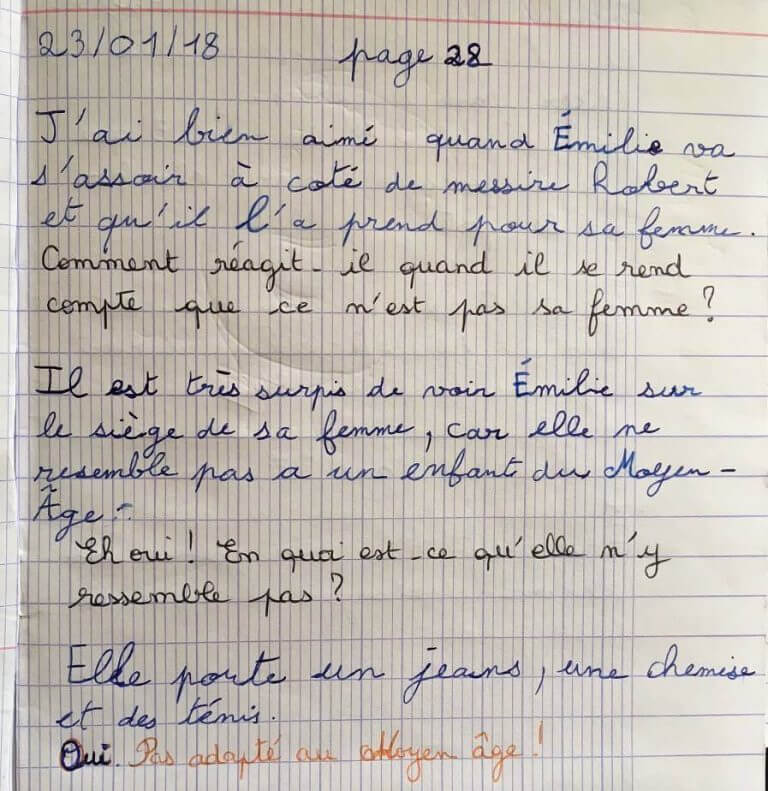 23/01/18 page 28
J'ai bien aimé quand Émilie va
s'assoir à coté de messire Robert
et qu'il l'a prend pour sa femme.
Comment réagit-il quand il se rend
compte que ce n'est pas sa femme ?
Il est très surpis de voir Émilie sur
le siège de sa femme, car elle ne
resemble pas a un enfant du Moyen-
Âge.
Eh oui ! En quoi est-ce qu'elle n'y
ressemble pas ?
Elle porte un jeans, une chemise
et des ténis.
Oui. Pas adapté au Moyen âge !